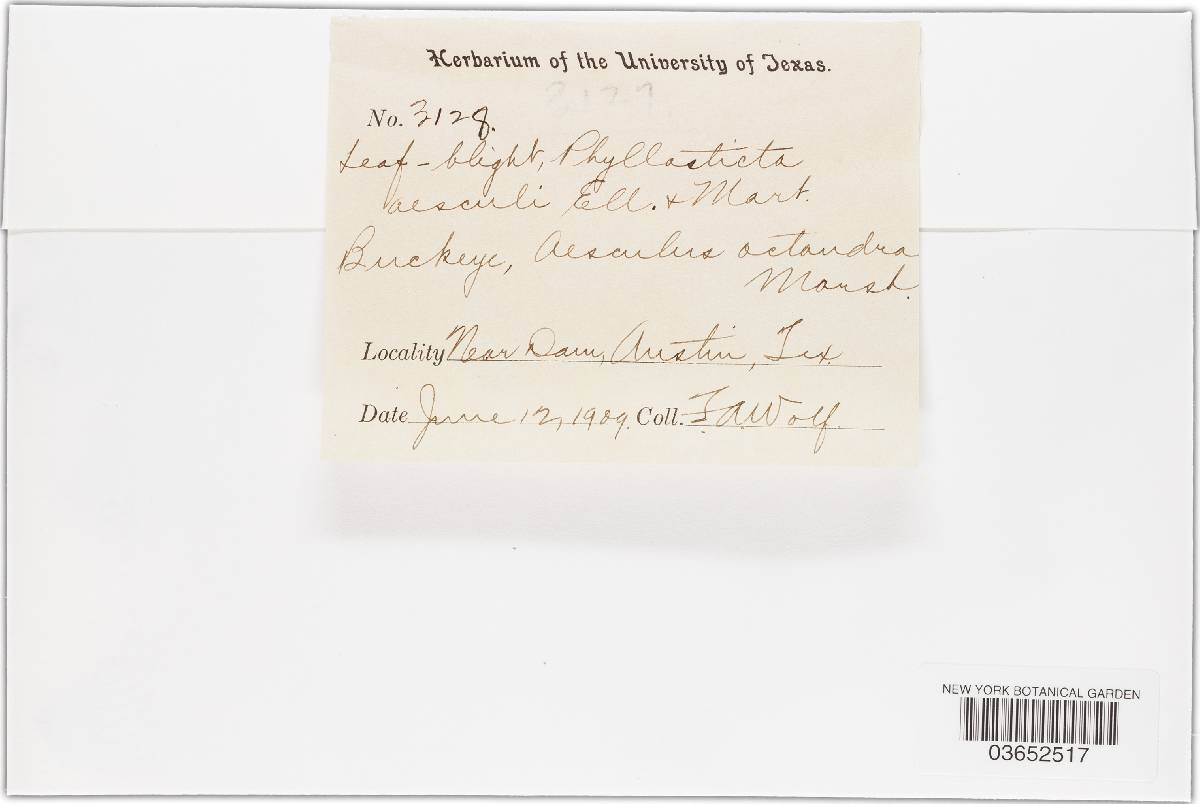 Herbarium of the University of Texas.
3127
No. 3128.
Leaf-blight, Phyllosticta
aesculi Ell. & Mart.
Buckeye, Aesculus octandra
Marsh.
Locality Near Dam, Austin, Tex.
Date June 12, 1909. Coll. F. A. Wolf.
NEW YORK BOTANICAL GARDEN
03652517